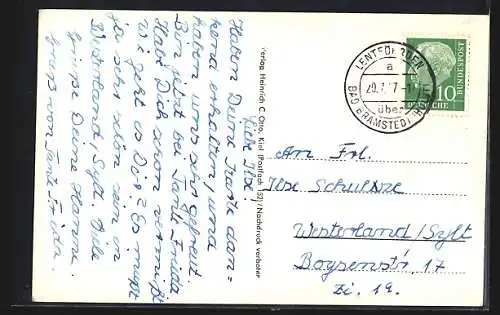 Liebe Ilse!
Haben Deine Karte dan=
kend erhalten, und
haben uns sehr gefreut.
Bin jetzt bei Tante Frieda
Habe Dich schon vermißt
Wie geht es Dir? Es muß
ja sehr schön sein in
Westerland, Sylt. Viele
Grüße Deine Hanne.
Gruß von Tante Frieda.
Verlag Heinrich C. Otto, Kiel (Postfach 152) / Nachdruck verboten
LENTFÖHRDEN
a
20.7.57
über
BAD BRAMSTEDT
10
DEUTSCHE
BUNDESPOST
An Frl.
Ilse Schultze
Westerland/Sylt
Boysenstr. 17
Zi. 19.